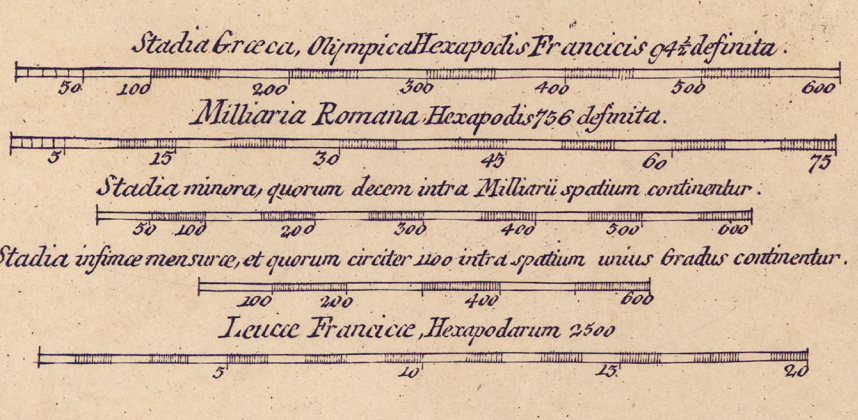 Stadia Græca, Olympica Hexapodis Francicis 94½ definita.
50 100 200 300 400 500 600
Milliaria Romana Hexapodis 756 definita.
5 15 30 45 60 75
Stadia minora, quorum decem intra Milliarii spatium continentur.
50 100 200 300 400 500 600
Stadia infimæ mensuræ, et quorum circiter 1100 intra spatium unius Gradus continentur.
100 200 400 600
Leucæ Francicæ, Hexapodarum 2500
5 10 15 20